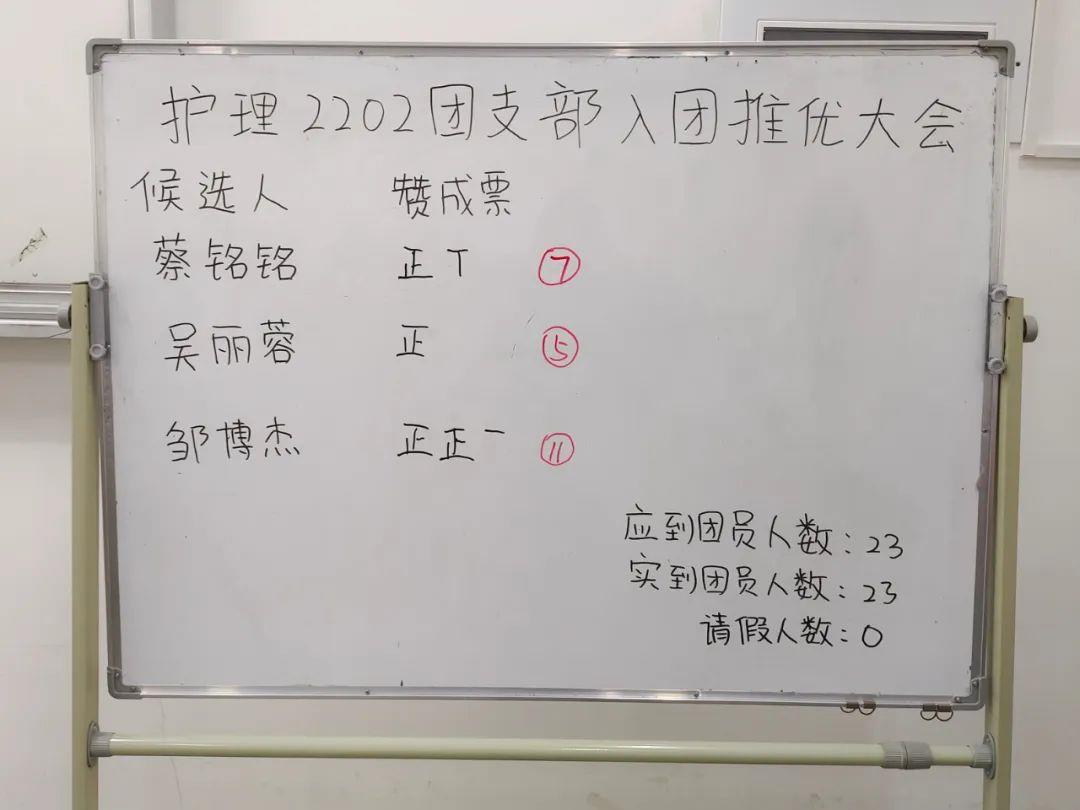 护理2202团支部入团推优大会
候选人 赞成票
蔡铭铭 正丅 ⑦
吴丽蓉 正 ⑤
邹博杰 正正一 ⑪
应到团员人数：23
实到团员人数：23
请假人数：0